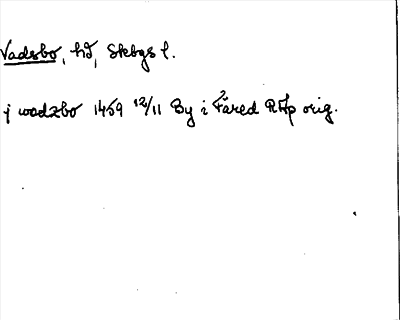 Vadsbo, hd, Skbgs l.
j wadzbo 1459 12/11 By i Fåred RAp orig.